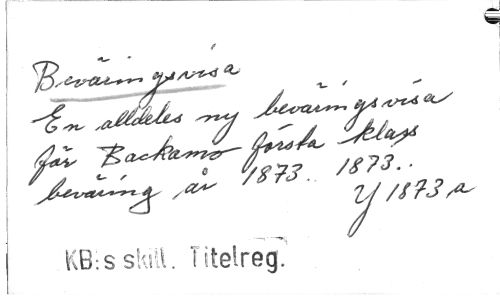 Beväringsvisa
En alldeles ny beväringsvisa
för Backamo första klass
beväring år 1873.. 1873..
Y 1873 a
KB:s skill. Titelreg.